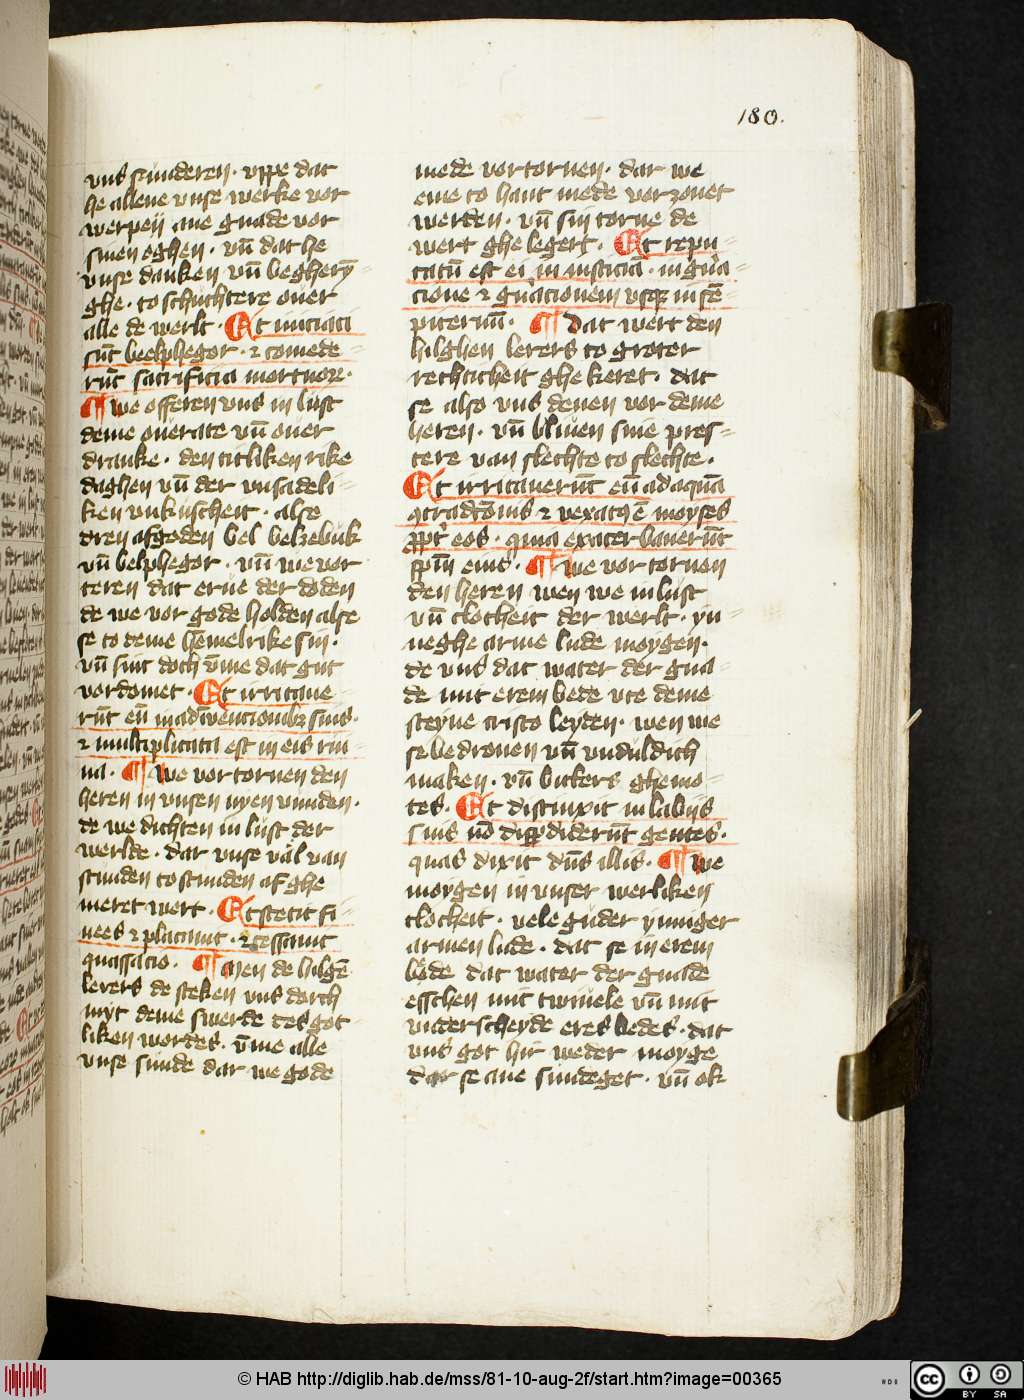 180.
vns sunderen · vppe dat
he allene vnse werke vor
werpen ane gnade vor
sinen oghen · vn̄ dat he
vnse danken vn̄ begherȳ-
ghe · to schuchtere ouer
alle de werlt · Et iniciati
sūt beelphegor · ⁊ comede-
rūt sacrificia mortuoꝝ ·
¶ we offeren vns in lust
deme ouerate vn̄ ouer
dranke · den titliken rike
daghen vn̄ der vnsadeli-
ken vnkuscheit · alse
dren afgoden bel belzebuk
vn̄ belphegor · vn̄ we vor
teren dat erue der doden
de we vor gode holden alse
se to deme hēmelrike sin ·
vn̄ sint doch vm̄e dat gut
vordomet · Et irritaue-
rūt eū in adīvencionibꝫ suis ·
⁊ multiplicata est in eis rui-
na · ¶ we vortornen den
heren in vnsen nyen vunden ·
de we dichten in lust der
werlde · dar vnse val van
stunden to stunden af ghe
meret wert · Et stetit fi-
nees ⁊ placauit · ⁊ cessauit
quassacio · ¶ Men de hilgē
lerers de steken vns dorch
myt deme swerde des got-
liken wordes · vm̄e alle
vnse sunde dar we gode
mede vortornen · dar we
eme to hant mede vorzonet
werden · vn̄ sin torne de
wert ghe legert · Et repu-
tatū est ei in iusticiā · in gn̄a-
cione ⁊ gn̄acionem vsqꝫ in sē-
piternū · ¶ Dat wert den
hilghen lerers to groter
rechticheit ghe keret · dat
se also vns denen vor deme
heren · vn̄ bliuen sine pres-
tere van slechte to slechte ·
Et irritauerūt eū ad aquā
ꝯtradcōnis ⁊ vexatꝯ ē moyses
ꝓpt̄ eos · quia exacerbauerūt
spm̄ eius · ¶ we vortornen
den heren wen we in lust
vn̄ clocheit der werlt · yn-
neghe arme lude moygen ·
de vns dat water der gna-
de mit erem bede vte deme
steyne cristo leyden · wen we
se bedrouen vn̄ vnduldich
maken · vn̄ bitters ghemo-
tes · Et distinxit in labijs
suis nō disp̄diderūt gentes ·
quas dixit dn̄s illis · ¶ we
moygen in vnser werliken
clocheit · vele guder ynniger
armen lude · dat se in erem
bede dat water der gnade
esschen mit twiuele vn̄ mit
vnderscheyde eres bedes · dat
vns got hir weder moyge
dar se ane sundeget · vn̄ ok
© HAB http://diglib.hab.de/mss/81-10-aug-2f/start.htm?image=00365
cc
BY SA